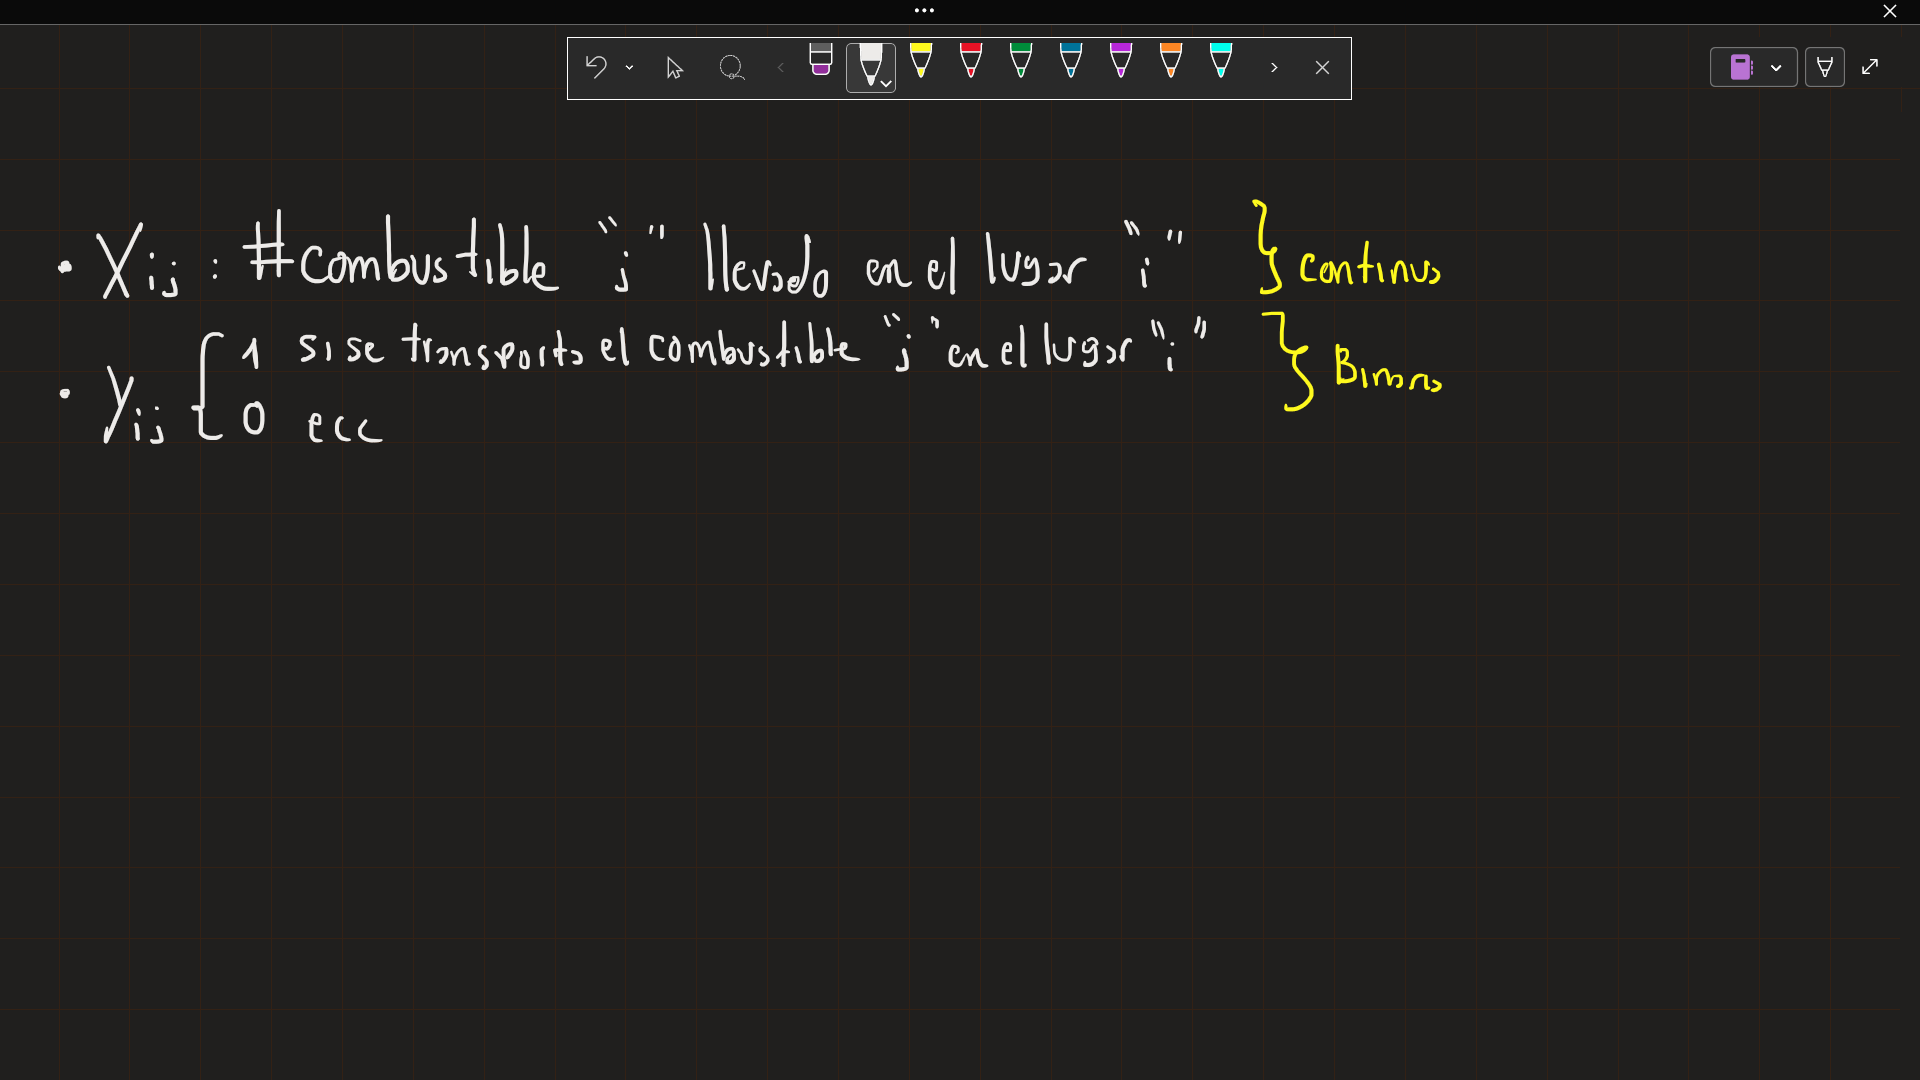 • Xij : #combustible "j" llevado en el lugar "i" } continua
• yij { 1 si se transporta el combustible "j" en el lugar "i" } Binaria
0 ecc